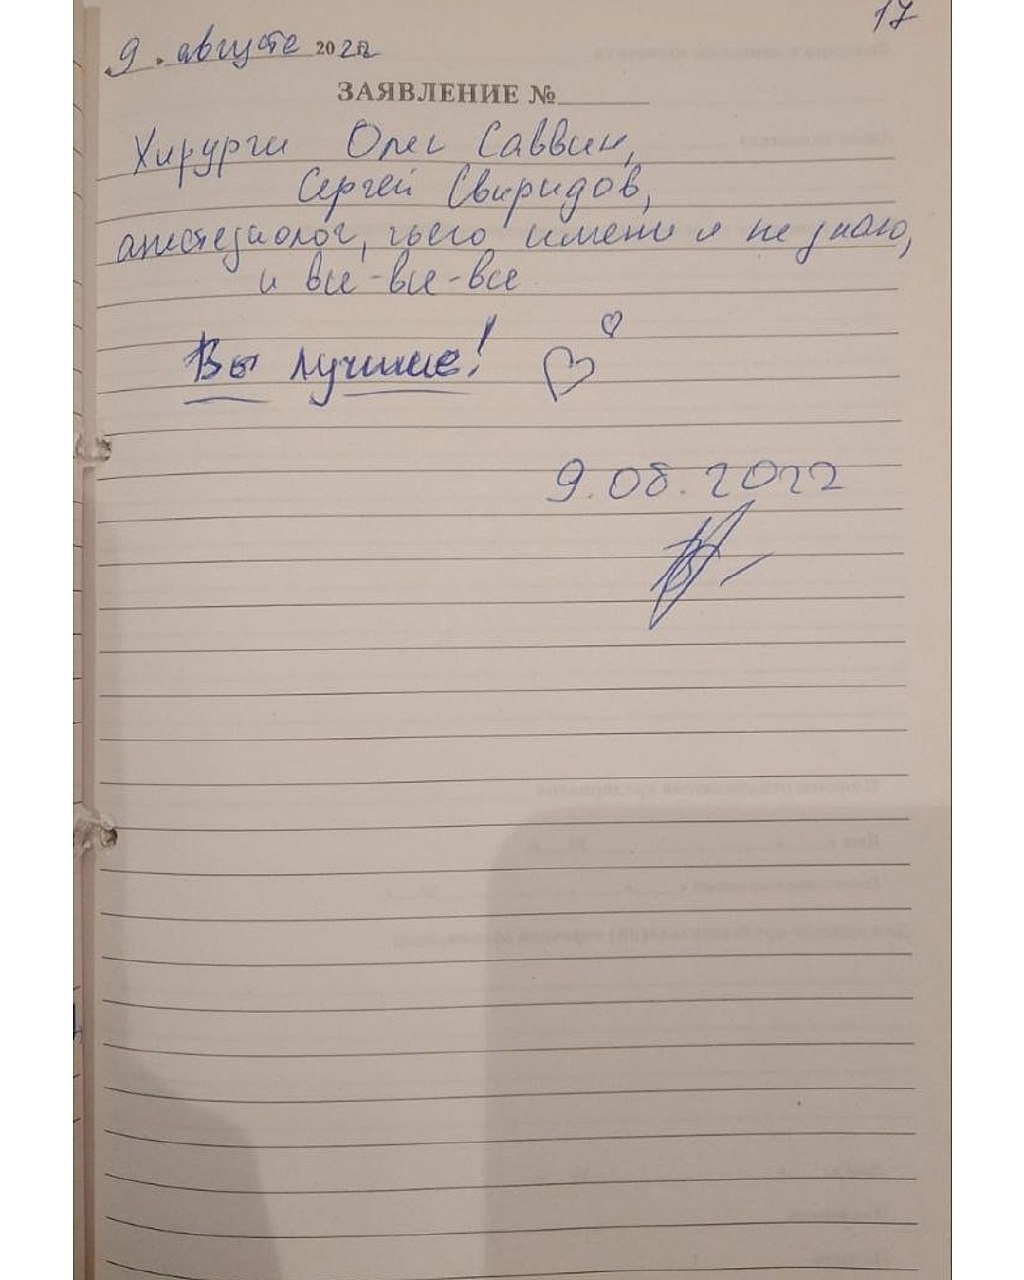 17
9. августа 2022
ЗАЯВЛЕНИЕ №
Хирурги Олег Саввин,
Сергей Свиридов,
анестезиолог, чьего имени я не знаю,
и все-все-все
Вы лучшие!
9.08.2022